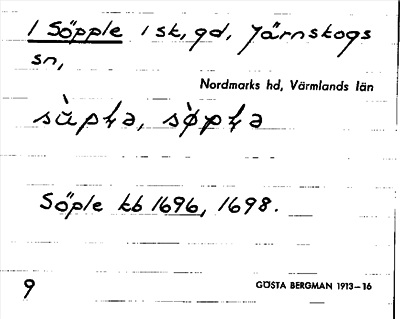 1 Söpple 1 sk, gd, Järnskogs
sn,
Nordmarks hd, Värmlands län
Söple kb 1696, 1698.
9
GÖSTA BERGMAN 1913–16